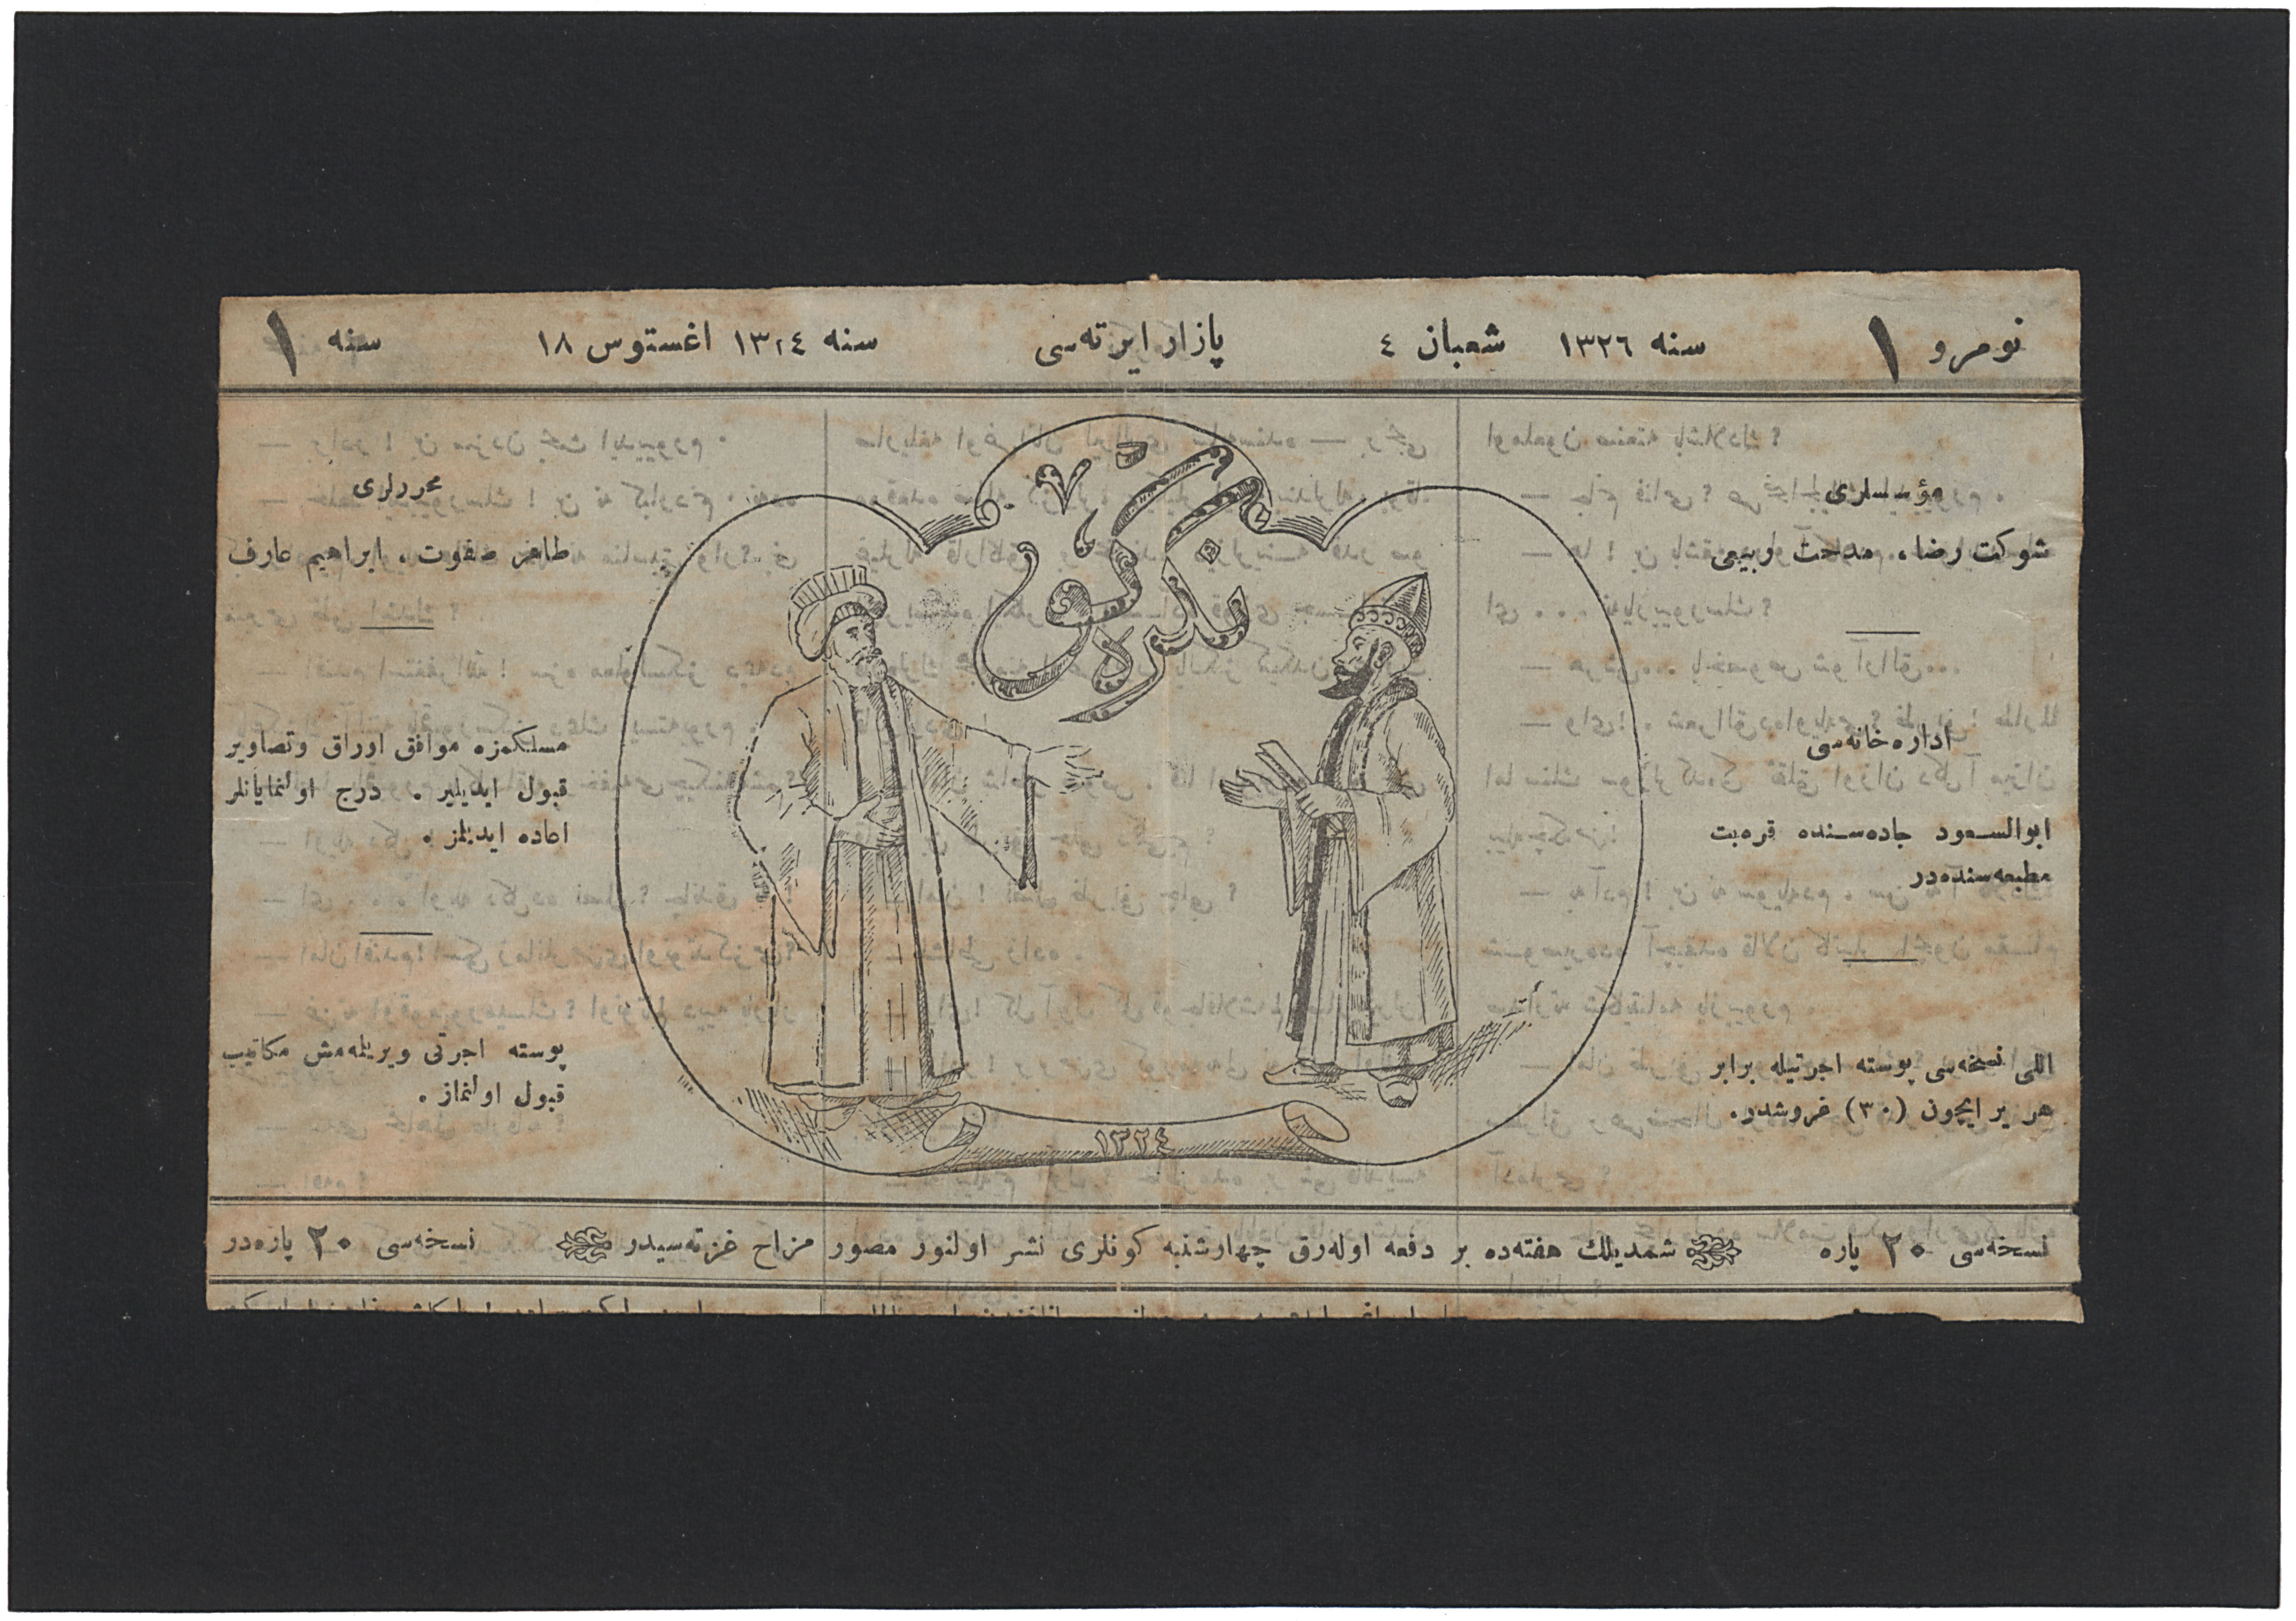 نومرو ١ سنه ١٣٢٦ شعبان ٤ پازار ايرته‌سى سنه ١٣٢٤ اغستوس ١٨ سنه ١
نكره كو
مؤسسلرى
شوكت رضا، مدحت ربيعى
اداره‌خانه‌سى
ابوالسعود جاده‌سنده قره‌بت
مطبعه‌سنده‌در
اللى نسخه‌سى پوسته اجرتيله برابر
هر ير ايچون (٣٠) غروشدر.
محررلرى
طاهر صفوت، ابراهيم عارف
مسلكمزه موافق اوراق وتصاوير
قبول ايديلير . درج اولنمايانلر
اعاده ايديلمز .
پوسته اجرتى ويريلمه‌مش مكاتيب
قبول اولنماز .
١٣٢٤
نسخه‌سى ٢٠ پاره شمديلك هفته‌ده بر دفعه اوله‌رق چهارشنبه كونلرى نشر اولنور مصور مزاح غزته‌سيدر نسخه‌سى ٢٠ پاره‌در